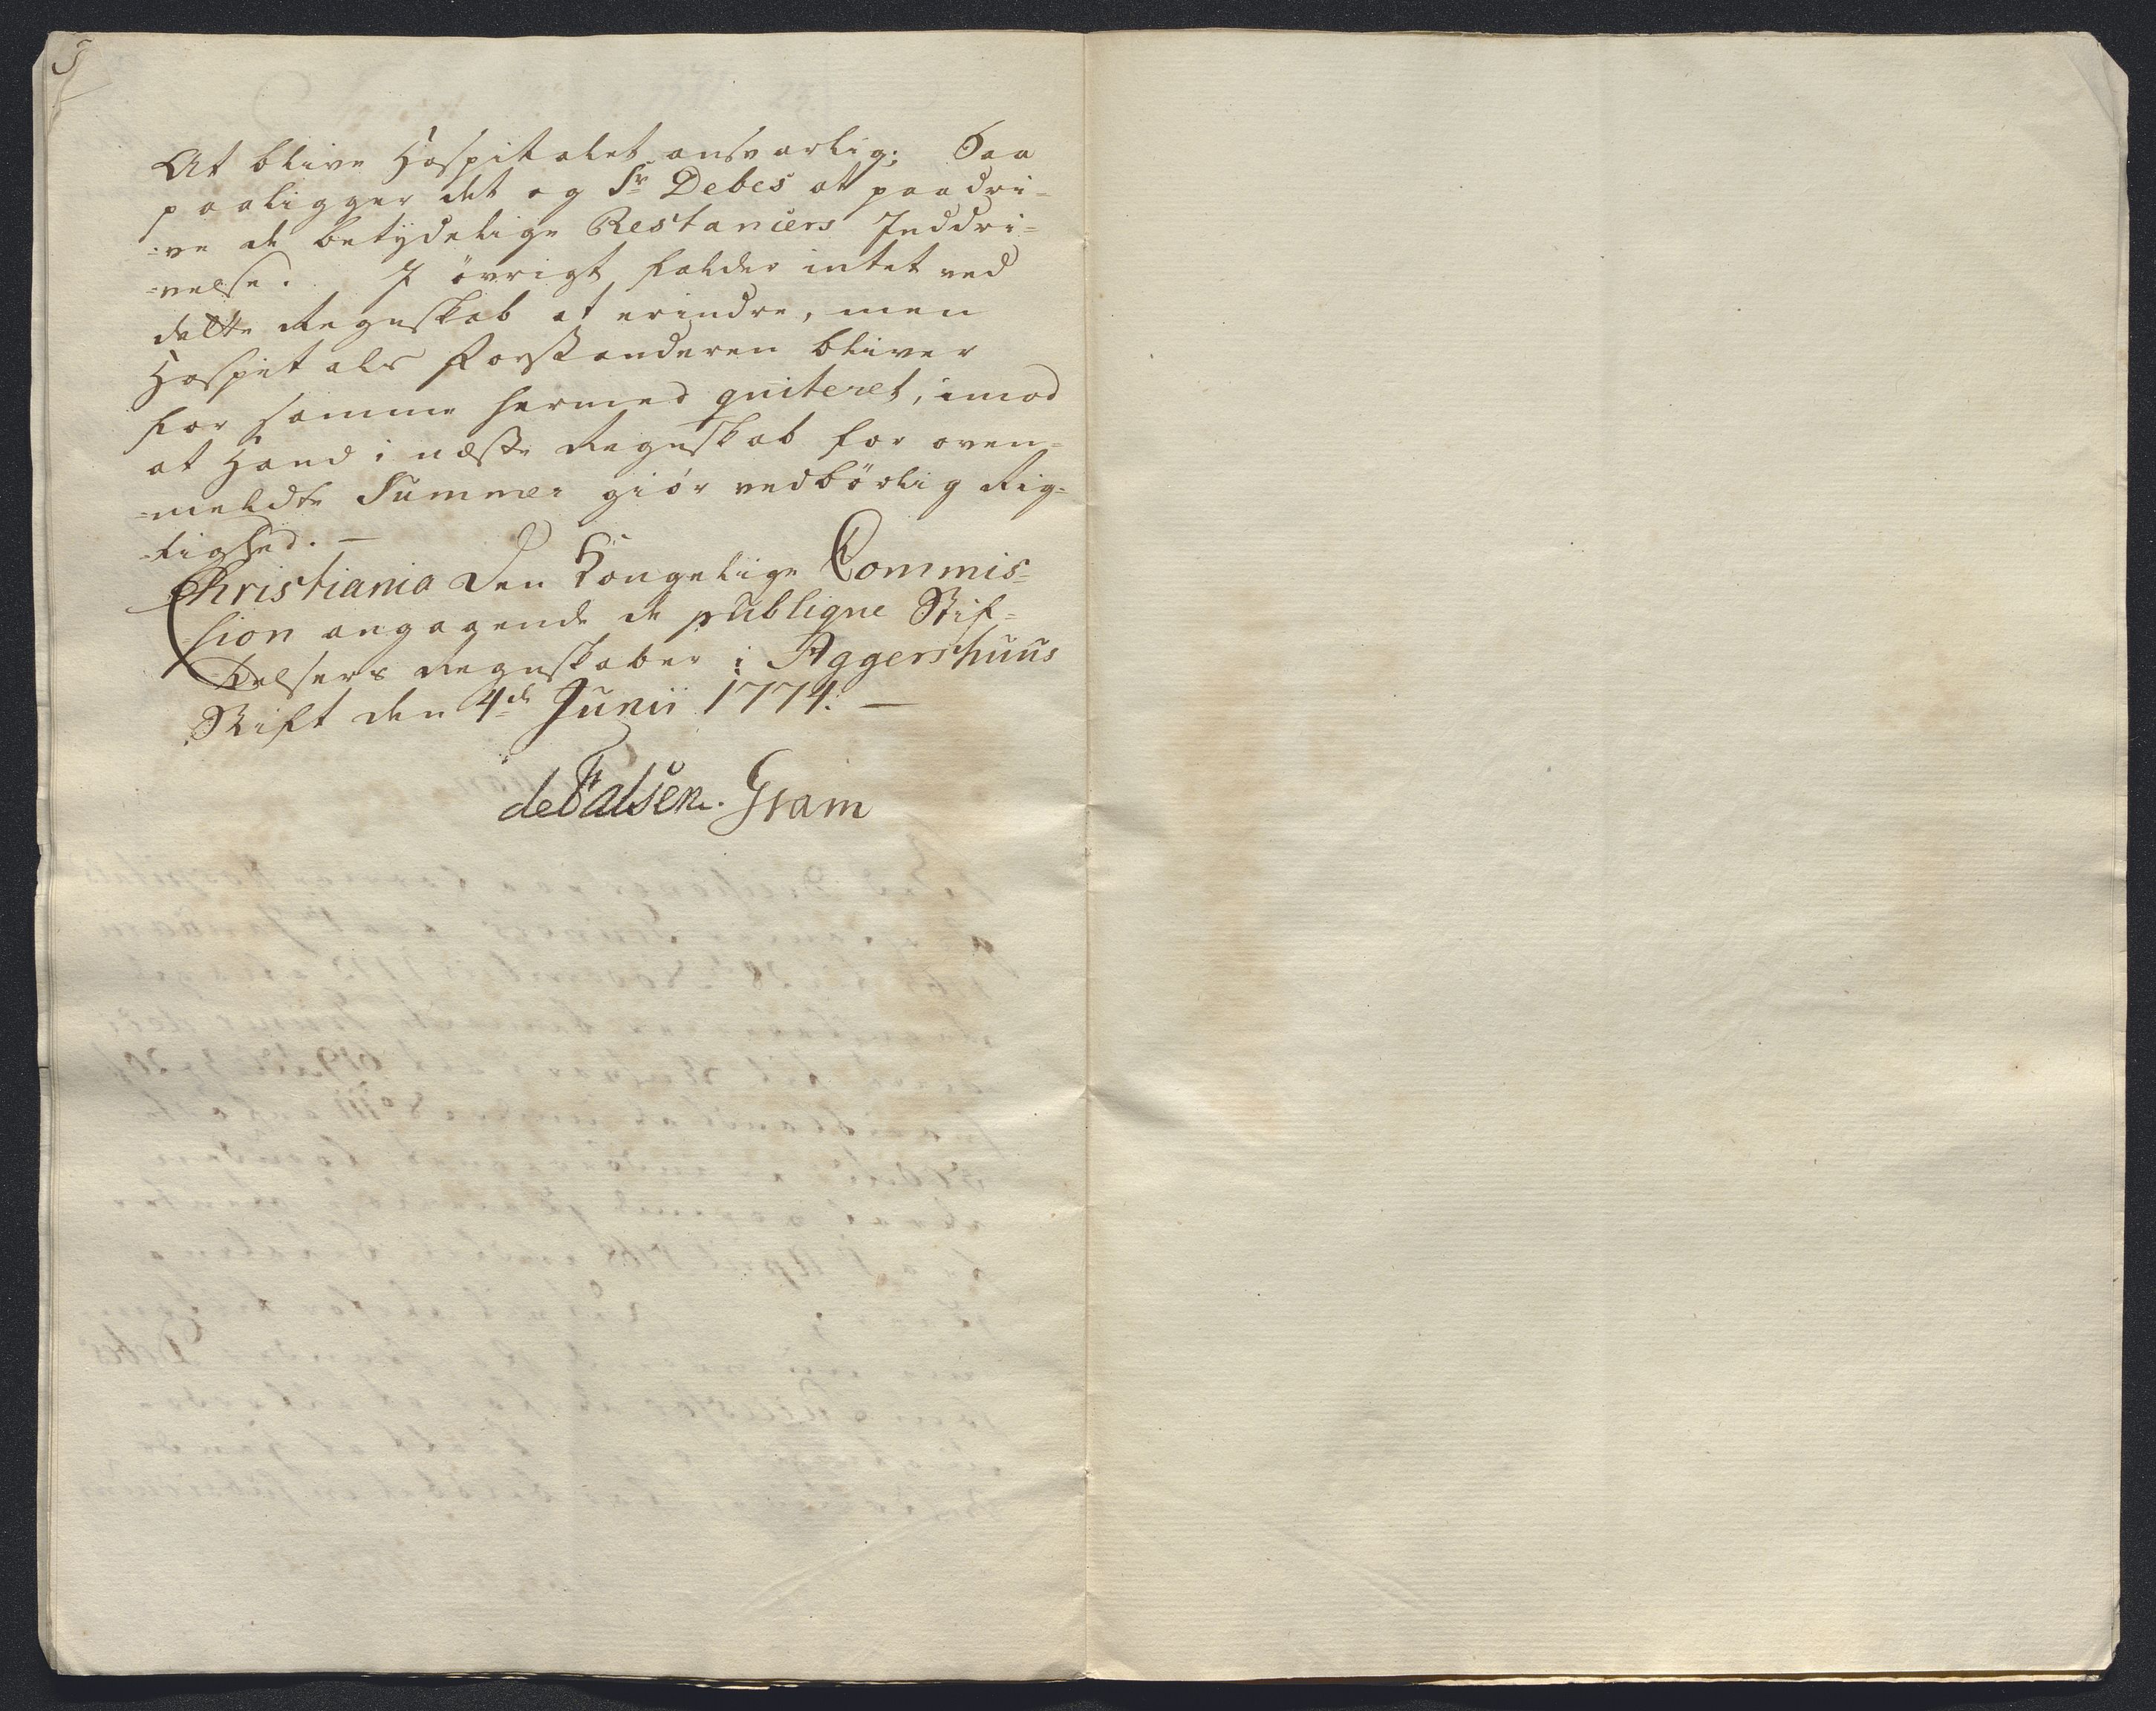 At blive Hospitalet ansvarlig; Saa
paaligger det og Sr Debes at paadri=
=ve de betydelige Restancers Inddri=
=velse. I övrigt falder intet ved
dette Regnskab at erindre, men
Hospitals Forstanderen bliver
for samme hermed quiteret, imod
at Hand i næste Regnskab for oven=
=meldte Summer giör vedbörlig Rig=
=tighed. —
Christiania Den Kongelige Commis=
=sion angaaende de publique Stif=
=telsers Regnskaber i Aggershuus
Stift den 4de Junii 1774. —
de Falsen. Gram